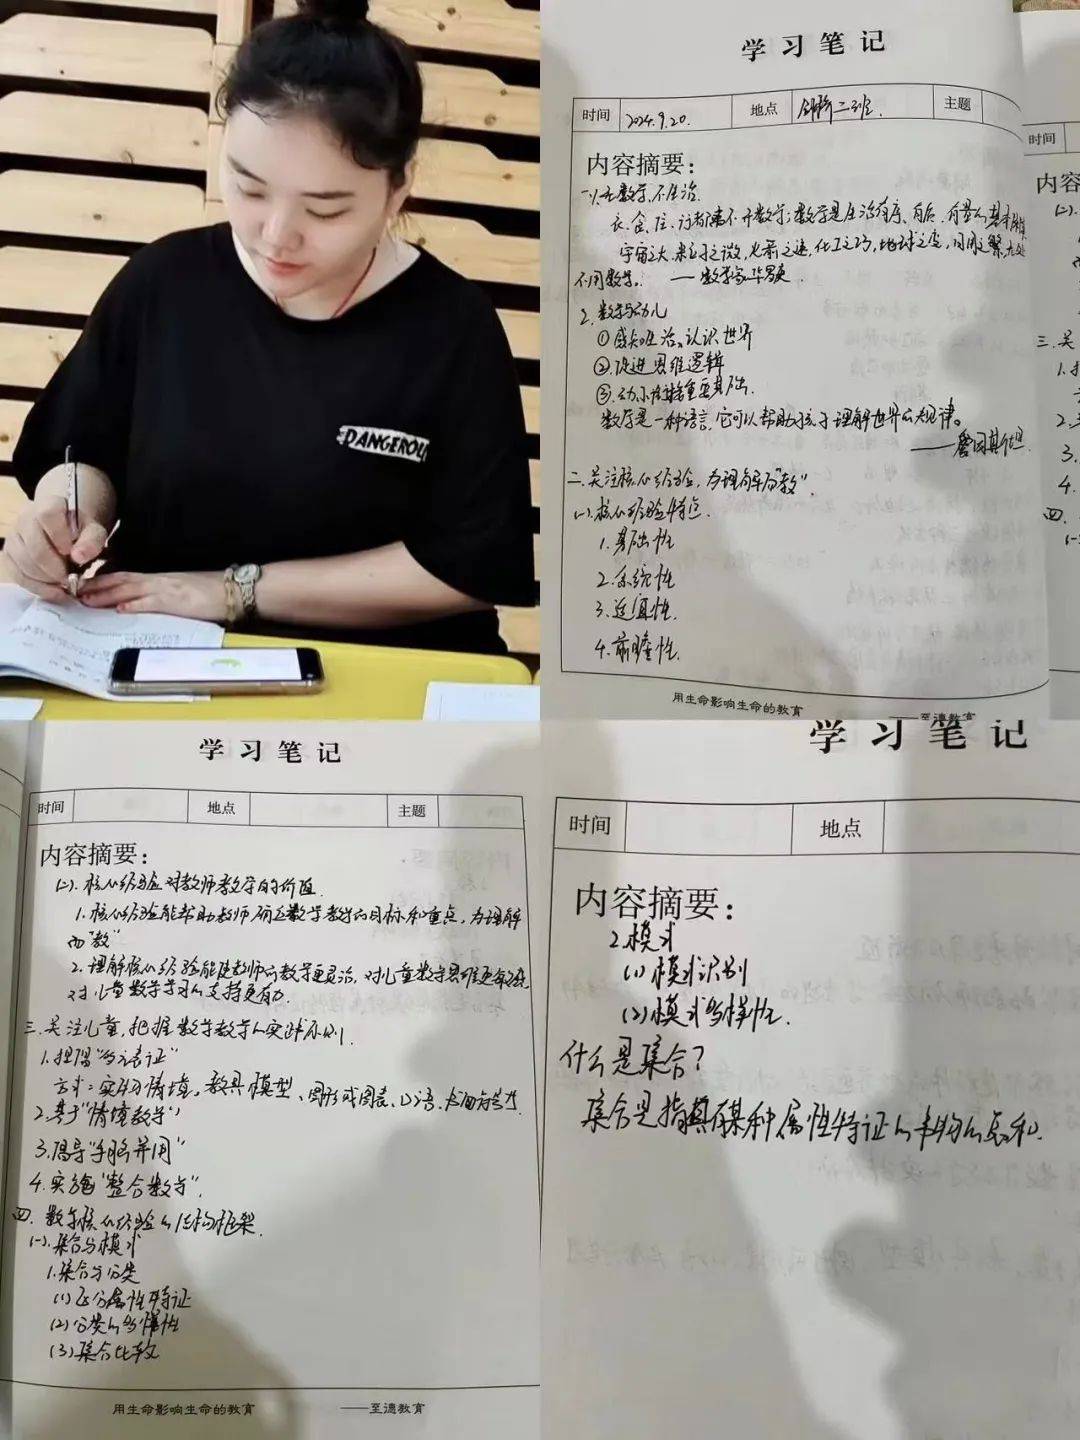 DANGEROU
学习笔记
时间 2024.9.20. 地点 二班. 主题
内容摘要：
一、1.无数学,不生活.
衣、食、住、行都离不开数学;数学是生活有序、有启、有景的基本
宇宙之大、粒子之微,火箭之速,化工之巧,地球之变,日用之繁,无处
不用数学。 ——数学家华罗庚.
2.数学与幼儿
①感知生活、认识世界
②改进思维逻辑
③.幼小衔接重要基础.
数学是一种语言,它可以帮助孩子理解世界的规律。
——爱因斯坦
二.关注核心经验,为理解而"教".
(一).核心经验特点.
1.基础性
2.系统性
3.连续性.
4.前瞻性.
用生命影响生命的教育 ——至德教育
时间
内容
(二).
三.关
1.
2.
3.
4.
四.
(一)
学习笔记
时间 地点 主题
内容摘要：
(二).核心经验对教师教学的价值
1.核心经验能帮助教师确立数学教学的目标和重点,为理解
而"教"
2.理解核心经验能使教师的教学更灵活,对儿童数学思维更敏感,
对儿童数学学习的支持更有力.
三.关注儿童,把握数学教学的实践原则.
1.提倡"多元表征"
方式:实物情境、教具模型、图形或图表、口语、书面符号
2.基于"情境教学"
3.倡导"手脑并用"
4.实施"整合教学".
四.数学核心经验的结构框架.
(一).集合与模式
1.集合与分类
(1)区分属性特征
(2)分类的多样性
(3)集合比较
用生命影响生命的教育 ——至德教育
学习笔记
时间 地点
内容摘要：
2.模式
(1)模式识别
(2)模式多样性.
什么是集合?
集合是指具有某种属性特征的事物的总和.